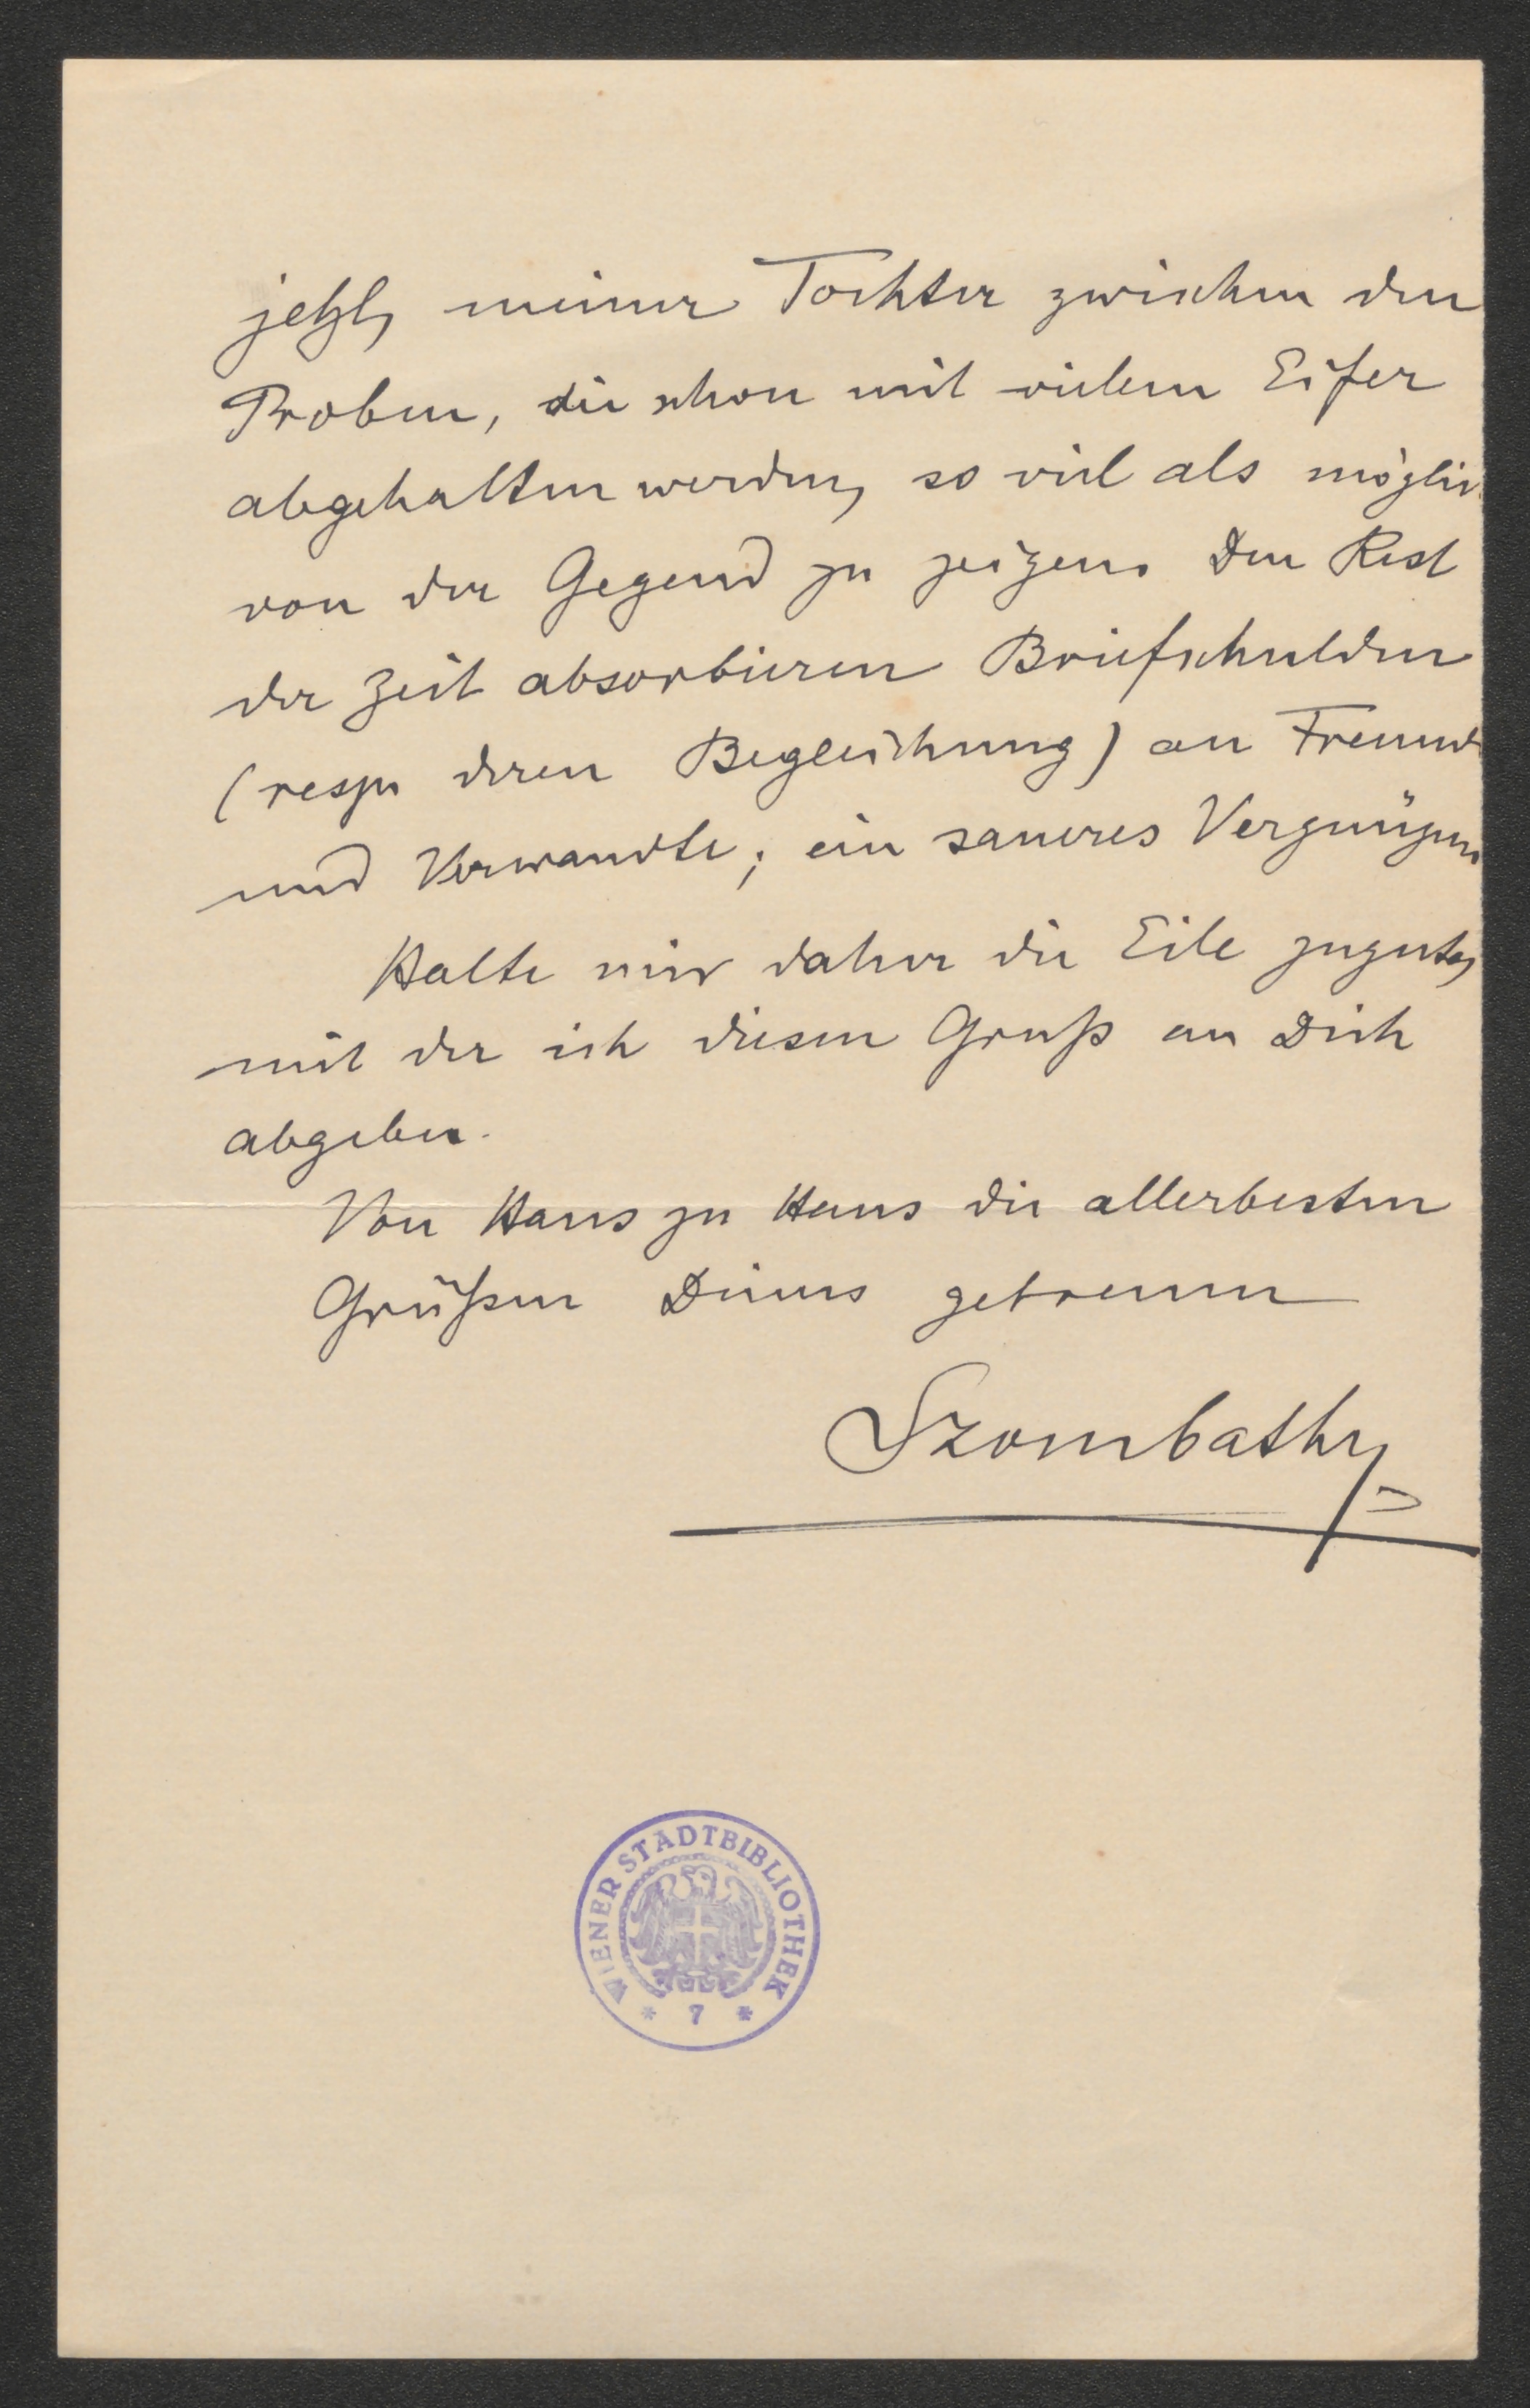 jetzt, meiner Tochter zwischen den
Proben, die schon mit vielem Eifer
abgehalten werden, so viel als möglich
von der Gegend zu zeigen. Den Rest
der Zeit absorbieren Briefschulden
(resp. deren Begleichung) an Freunde
und Verwandte; ein saueres Vergnügen.
Halte mir daher die Eile zugute,
mit der ich diesen Gruß an Dich
abgebe.
Von Haus zu Haus die allerbesten
Grüßen Deines getreuen
Szombathy
WIENER STADTBIBLIOTHEK
* 7 *